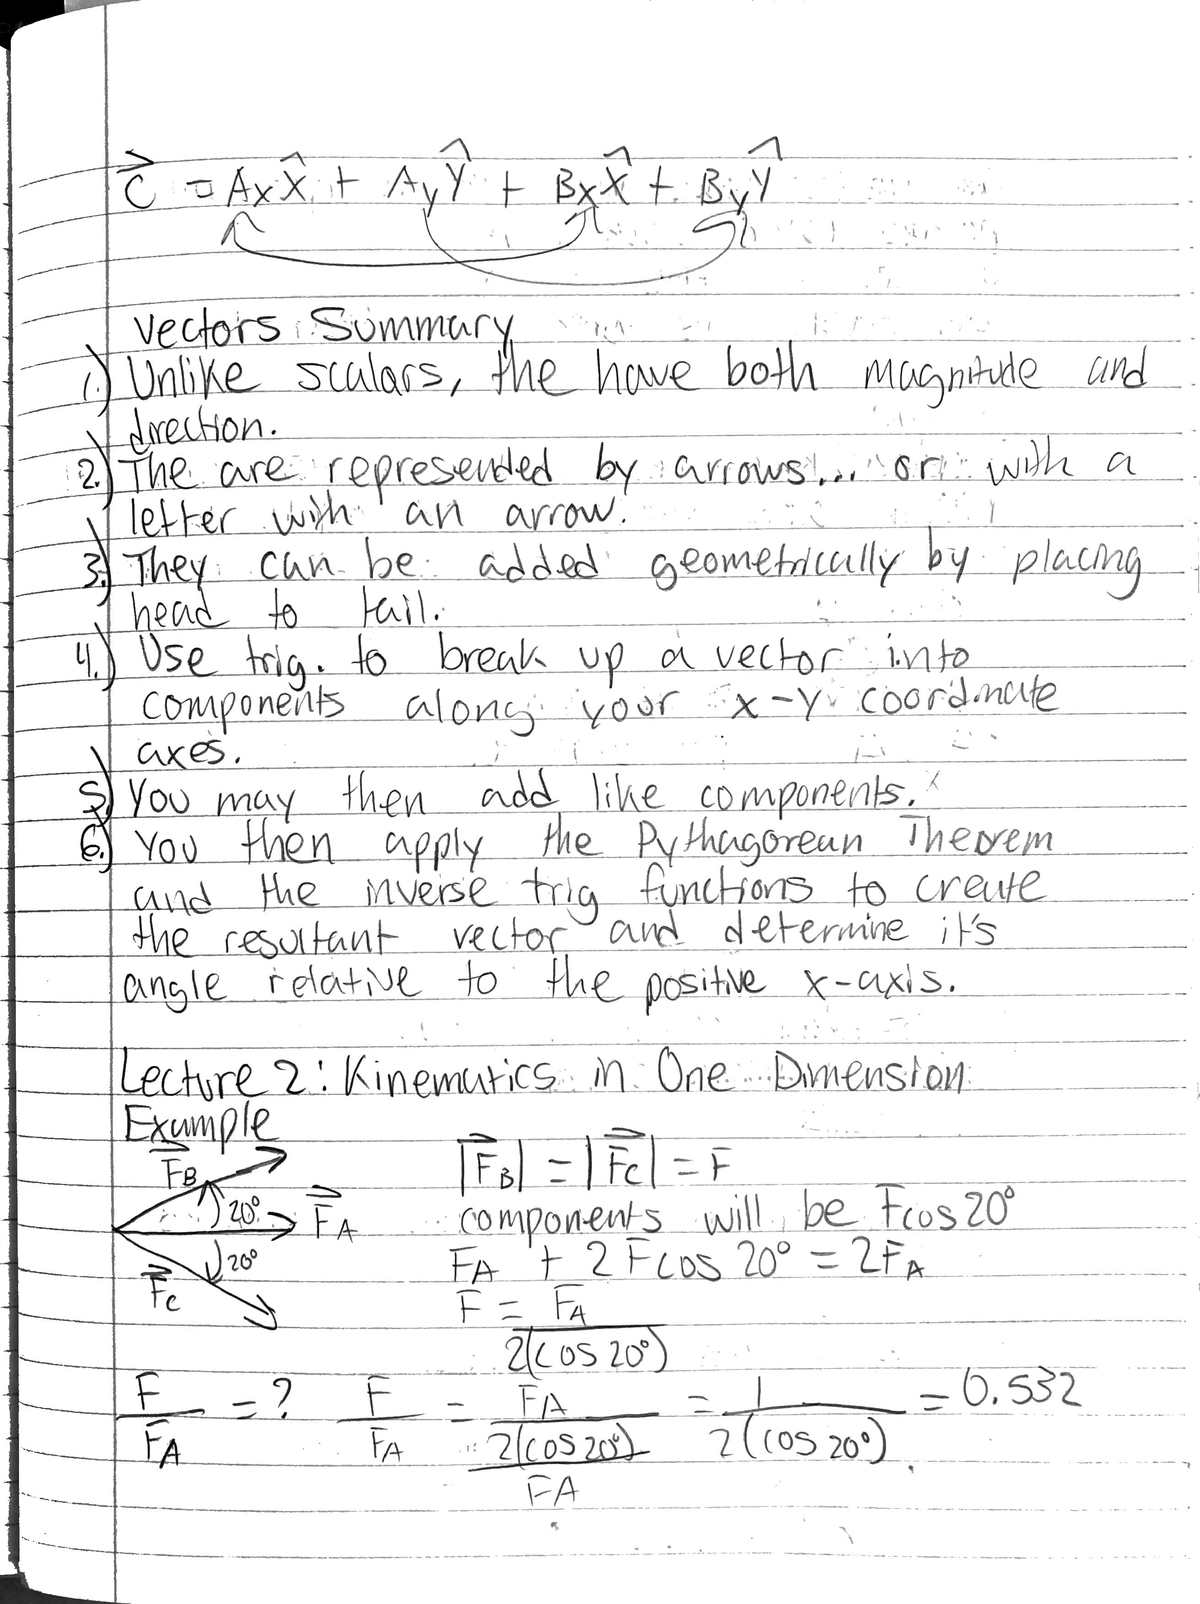 C⃗ = AxX̂ + AyŶ + BxX̂ + ByŶ
Vectors Summary
1.) Unlike scalars, the have both magnitude and
direction.
2.) The are represended by arrows... or with a
letter with an arrow.
3.) They can be added geometrically by placing
head to tail.
4.) Use trig. to break up a vector into
components along your x-y coordinate
axes.
5.) You may then add like components.
6.) You then apply the Pythagorean Theorem
and the inverse trig functions to create
the resultant vector and determine it's
angle relative to the positive x-axis.
Lecture 2: Kinematics in One Dimension
Example
F⃗B 20° F⃗A
F⃗C 20°
|F⃗B| = |F⃗C| = F
components will be Fcos20°
FA + 2Fcos 20° = 2FA
F = FA / 2(cos 20°)
F / FA = ? F / FA = FA / 2(cos 20°) / FA = 1 / 2(cos 20°) = 0.532